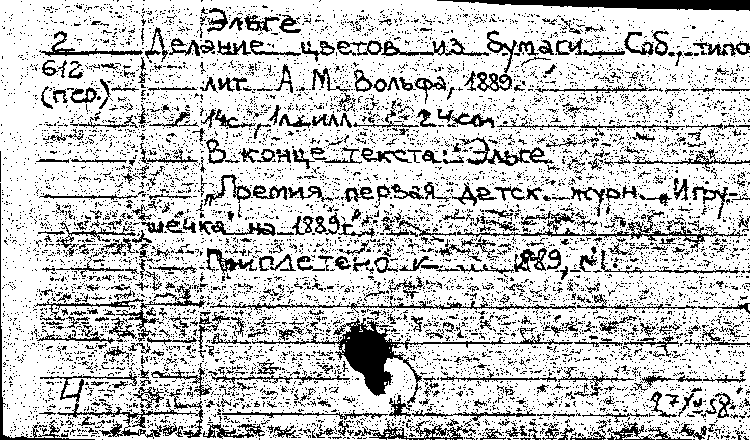 Эльге
2 Делание цветов из бумаги. Спб., типо
612 лит. А. М. Вольфа, 1889.
(пер.)
14с., 1л. илл. 24 cm.
В конце текста: Эльге
"Премия первая детск. журн. "Игру-
шечка" на 1889г."
Приплетено к ... 1889, №1.
4